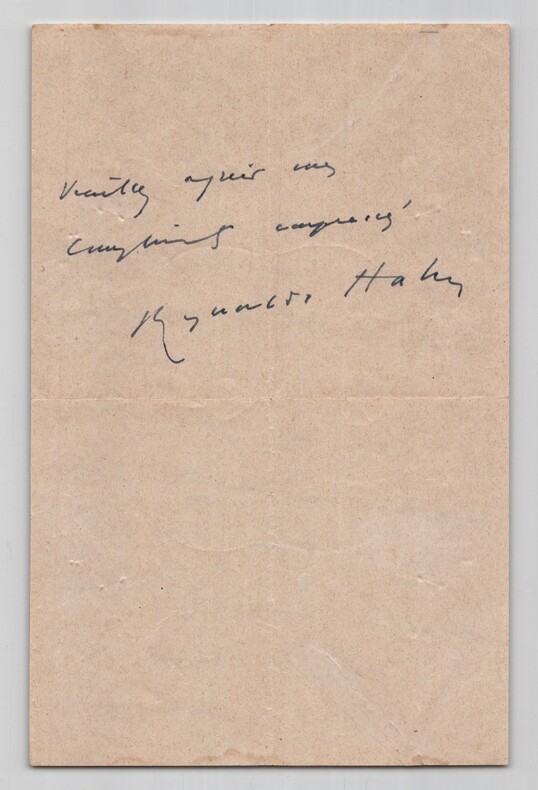 Veuillez agréer mes
compliments empressés
Reynaldo Hahn